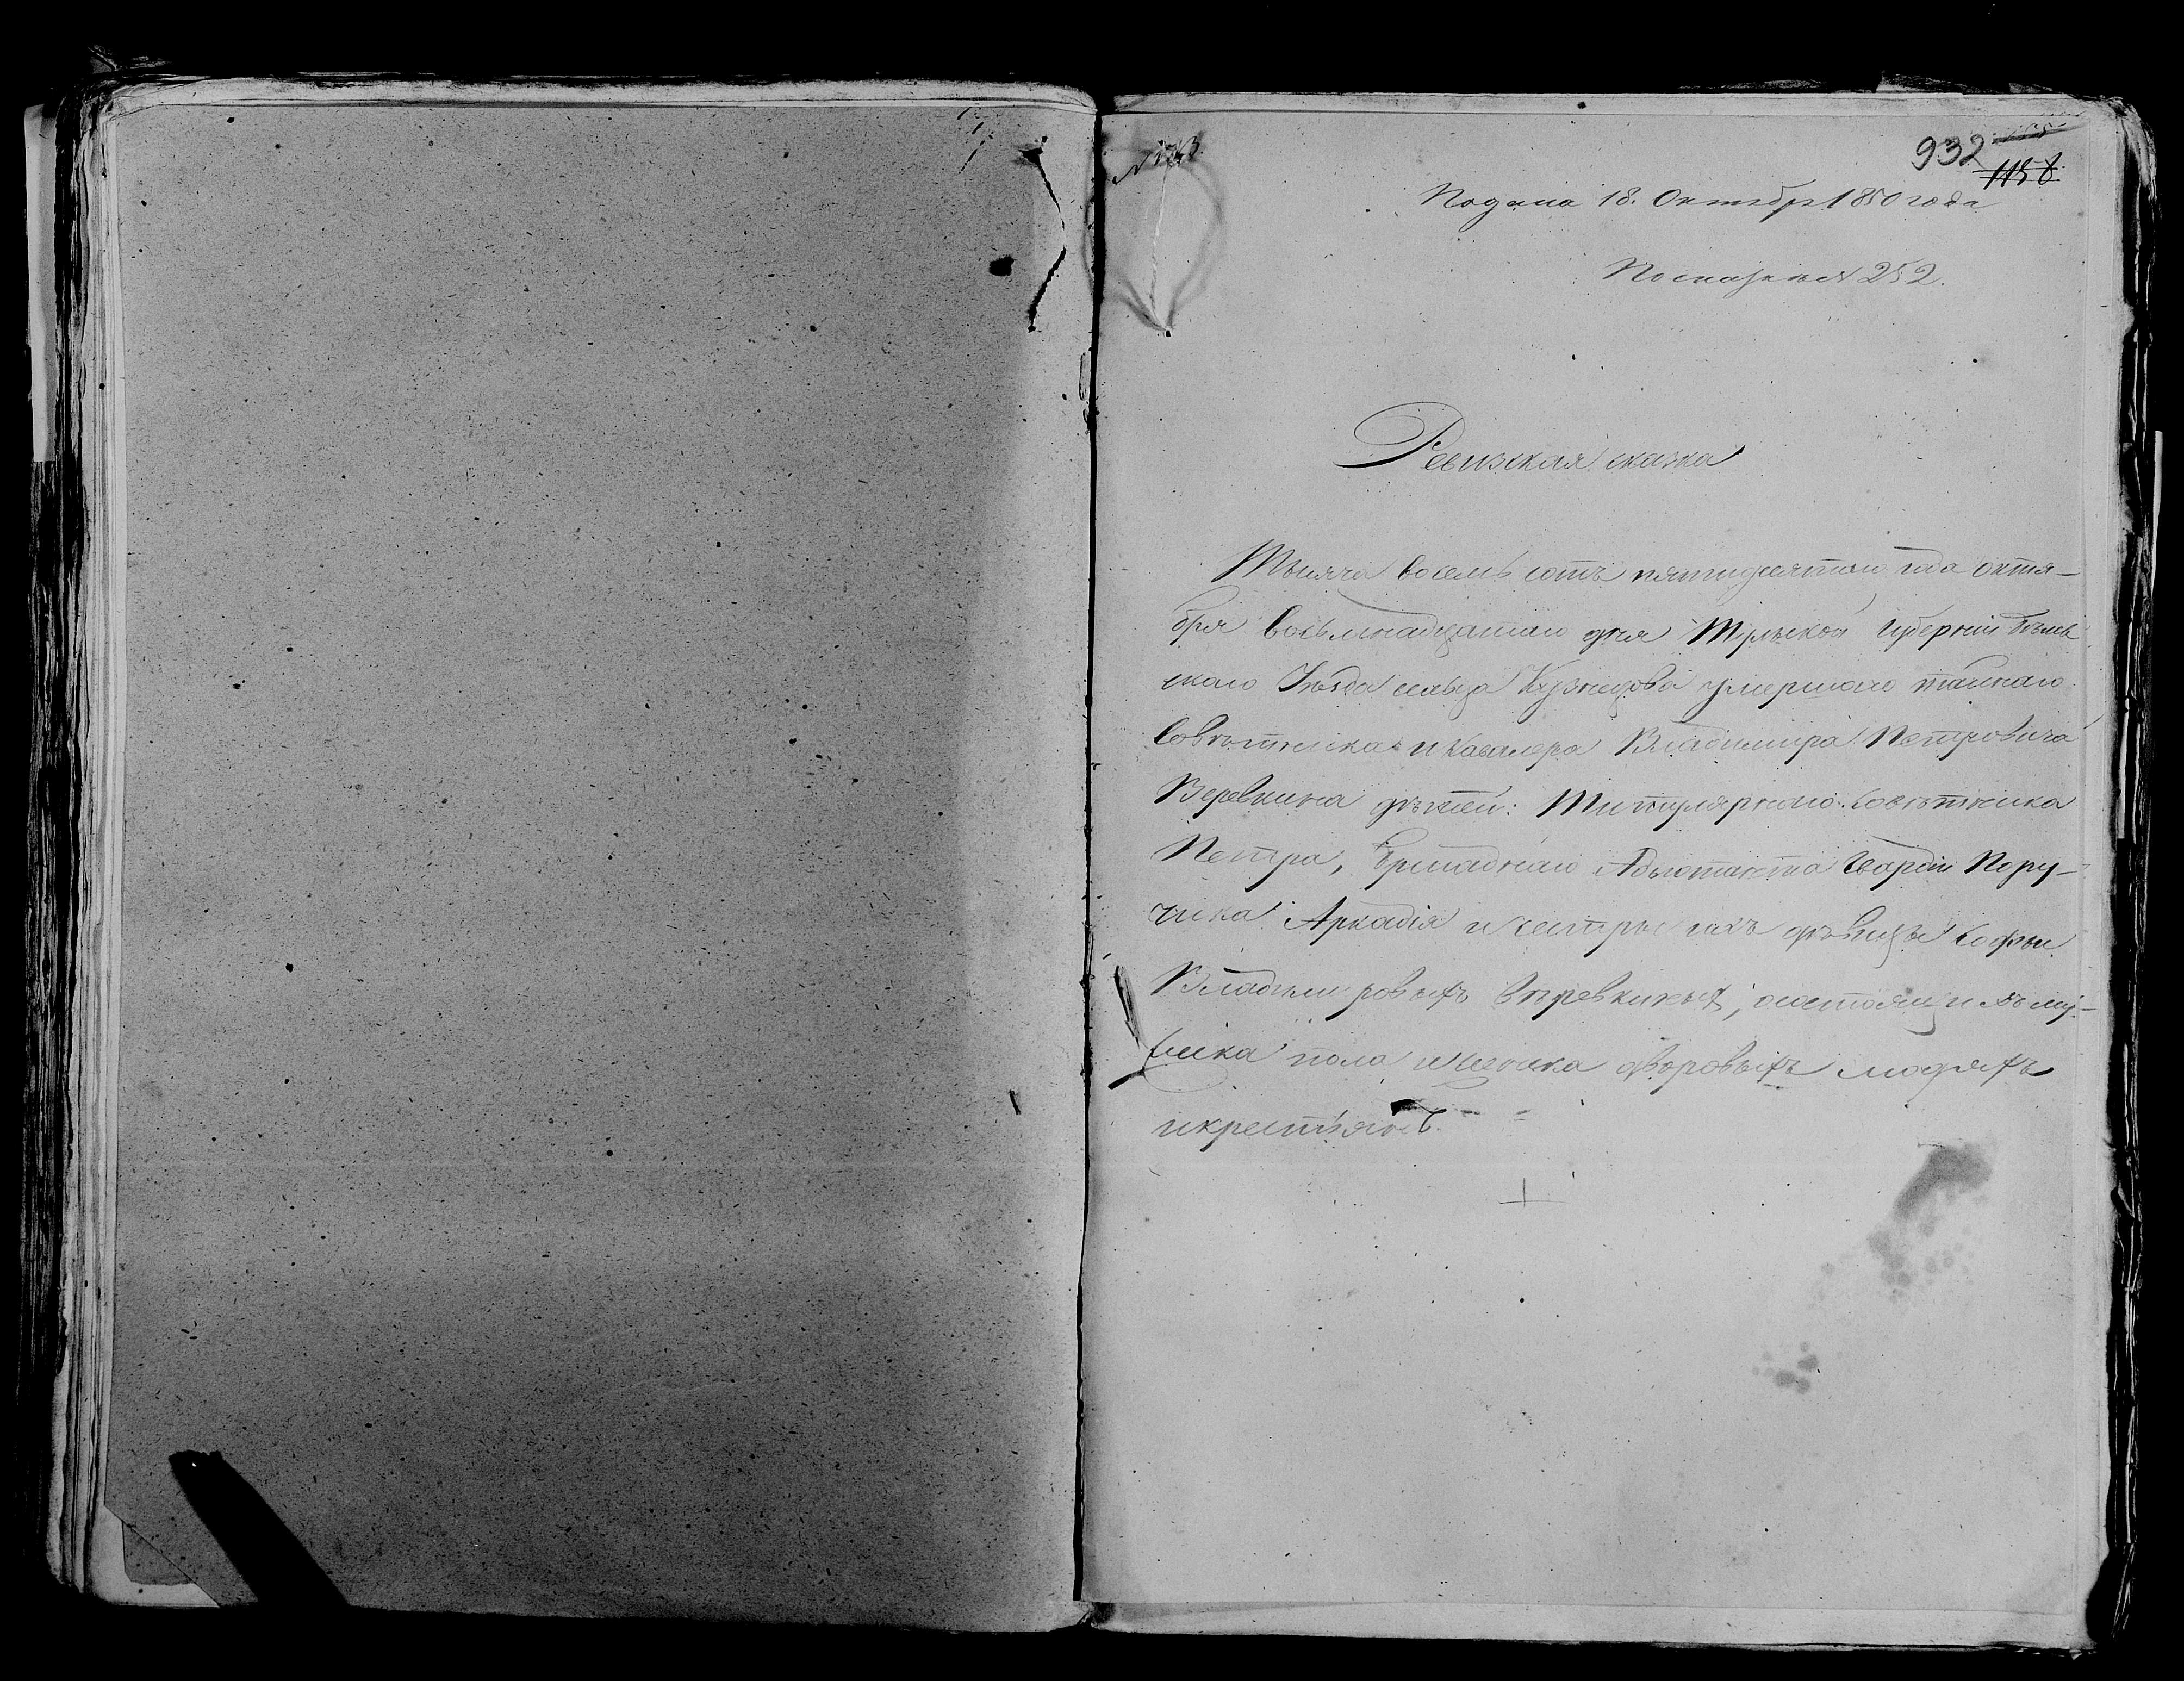 932
1158
Подана 18. Октября 1850 года
По сказке № 252.
Ревизская сказка
Тысяча восемь сотъ пятидесятаго года октя-
бря восьмнадцатаго дня Тульской Губерніи Бѣлев
скаго Уѣзда сельца Кузнецова умершаго тайнаго
Совѣтника и Кавалера Владимира Петровича
Веревкина дѣтей: Титулярнаго Совѣтника
Петра, Бригаднаго Адьютанта Гвардіи Пору-
чика Аркадія и сестры ихъ дѣвицы Софьи
Владимировыхъ Веревкиныхъ, о состоящихъ му-
жеска пола и женска дворовыхъ людяхъ
и крестьянъ.